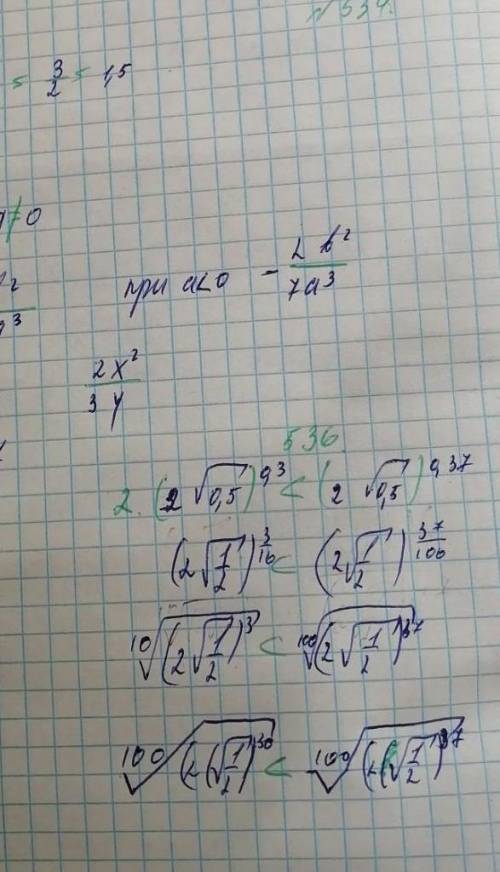 № 534.
= 3/2 = 1,5
≠0
при a<0 - 2 b²/7a³
2x²/3y
536.
2. (2 √0,5)^0,3 < (2 √0,5)^0,37
(2√1/2)^3/10 < (2√1/2)^37/100
¹⁰√(2√1/2)³ < ¹⁰⁰√(2√1/2)³⁷
¹⁰⁰√(2(√1/2)³⁰ < ¹⁰⁰√(2(√1/2)³⁷